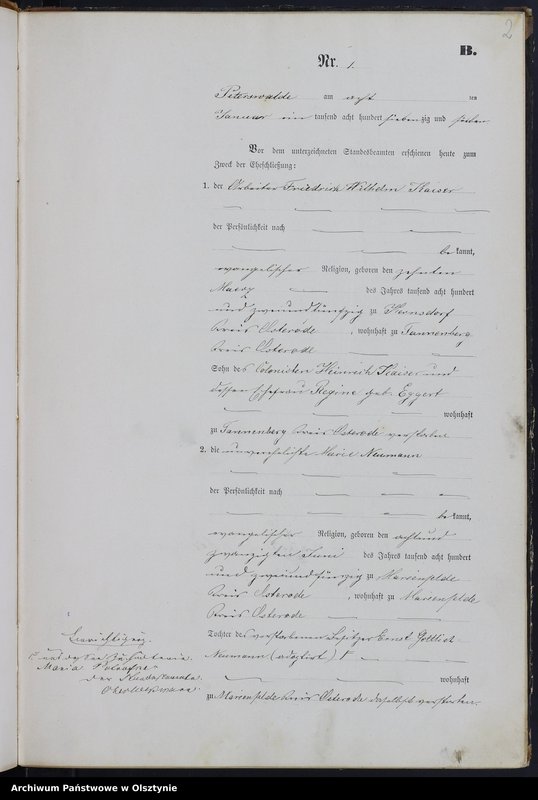 2
B.
Nr. 1.
Peterswalde am acht ten
Januar ein tausend acht hundert siebenzig und sieben
Vor dem unterzeichneten Standesbeamten erschienen heute zum
Zweck der Eheschließung:
1. der Arbeiter Friedrich Wilhelm Kaiser
der Persönlichkeit nach
be kannt,
evangelischer Religion, geboren den zehnten
Maerz des Jahres tausend acht hundert
und zweiundfünfzig zu
Kreis Osterode, wohnhaft zu Tannenberg
Kreis Osterode
Sohn des Colonisten Heinrich Kaiser und
dessen Ehefrau Regine geb. Eggert
wohnhaft
zu Tannenberg Kreis Osterode verstorben
2. die unverehelichte Marie Neumann
der Persönlichkeit nach
be kannt,
evangelischer Religion, geboren den achtund
zwanzigten Juni des Jahres tausend acht hundert
und zu Marienfelde
Kreis Osterode, wohnhaft zu Marienfelde
Kreis Osterode
Tochter des verstorbenen Besitzer Ernst Gottlieb
Neumann (adoptirt)
wohnhaft
zu Marienfelde Kreis Osterode daselbst verstorben.
Maria
Der Standesbeamte
Archiwum Państwowe w Olsztynie